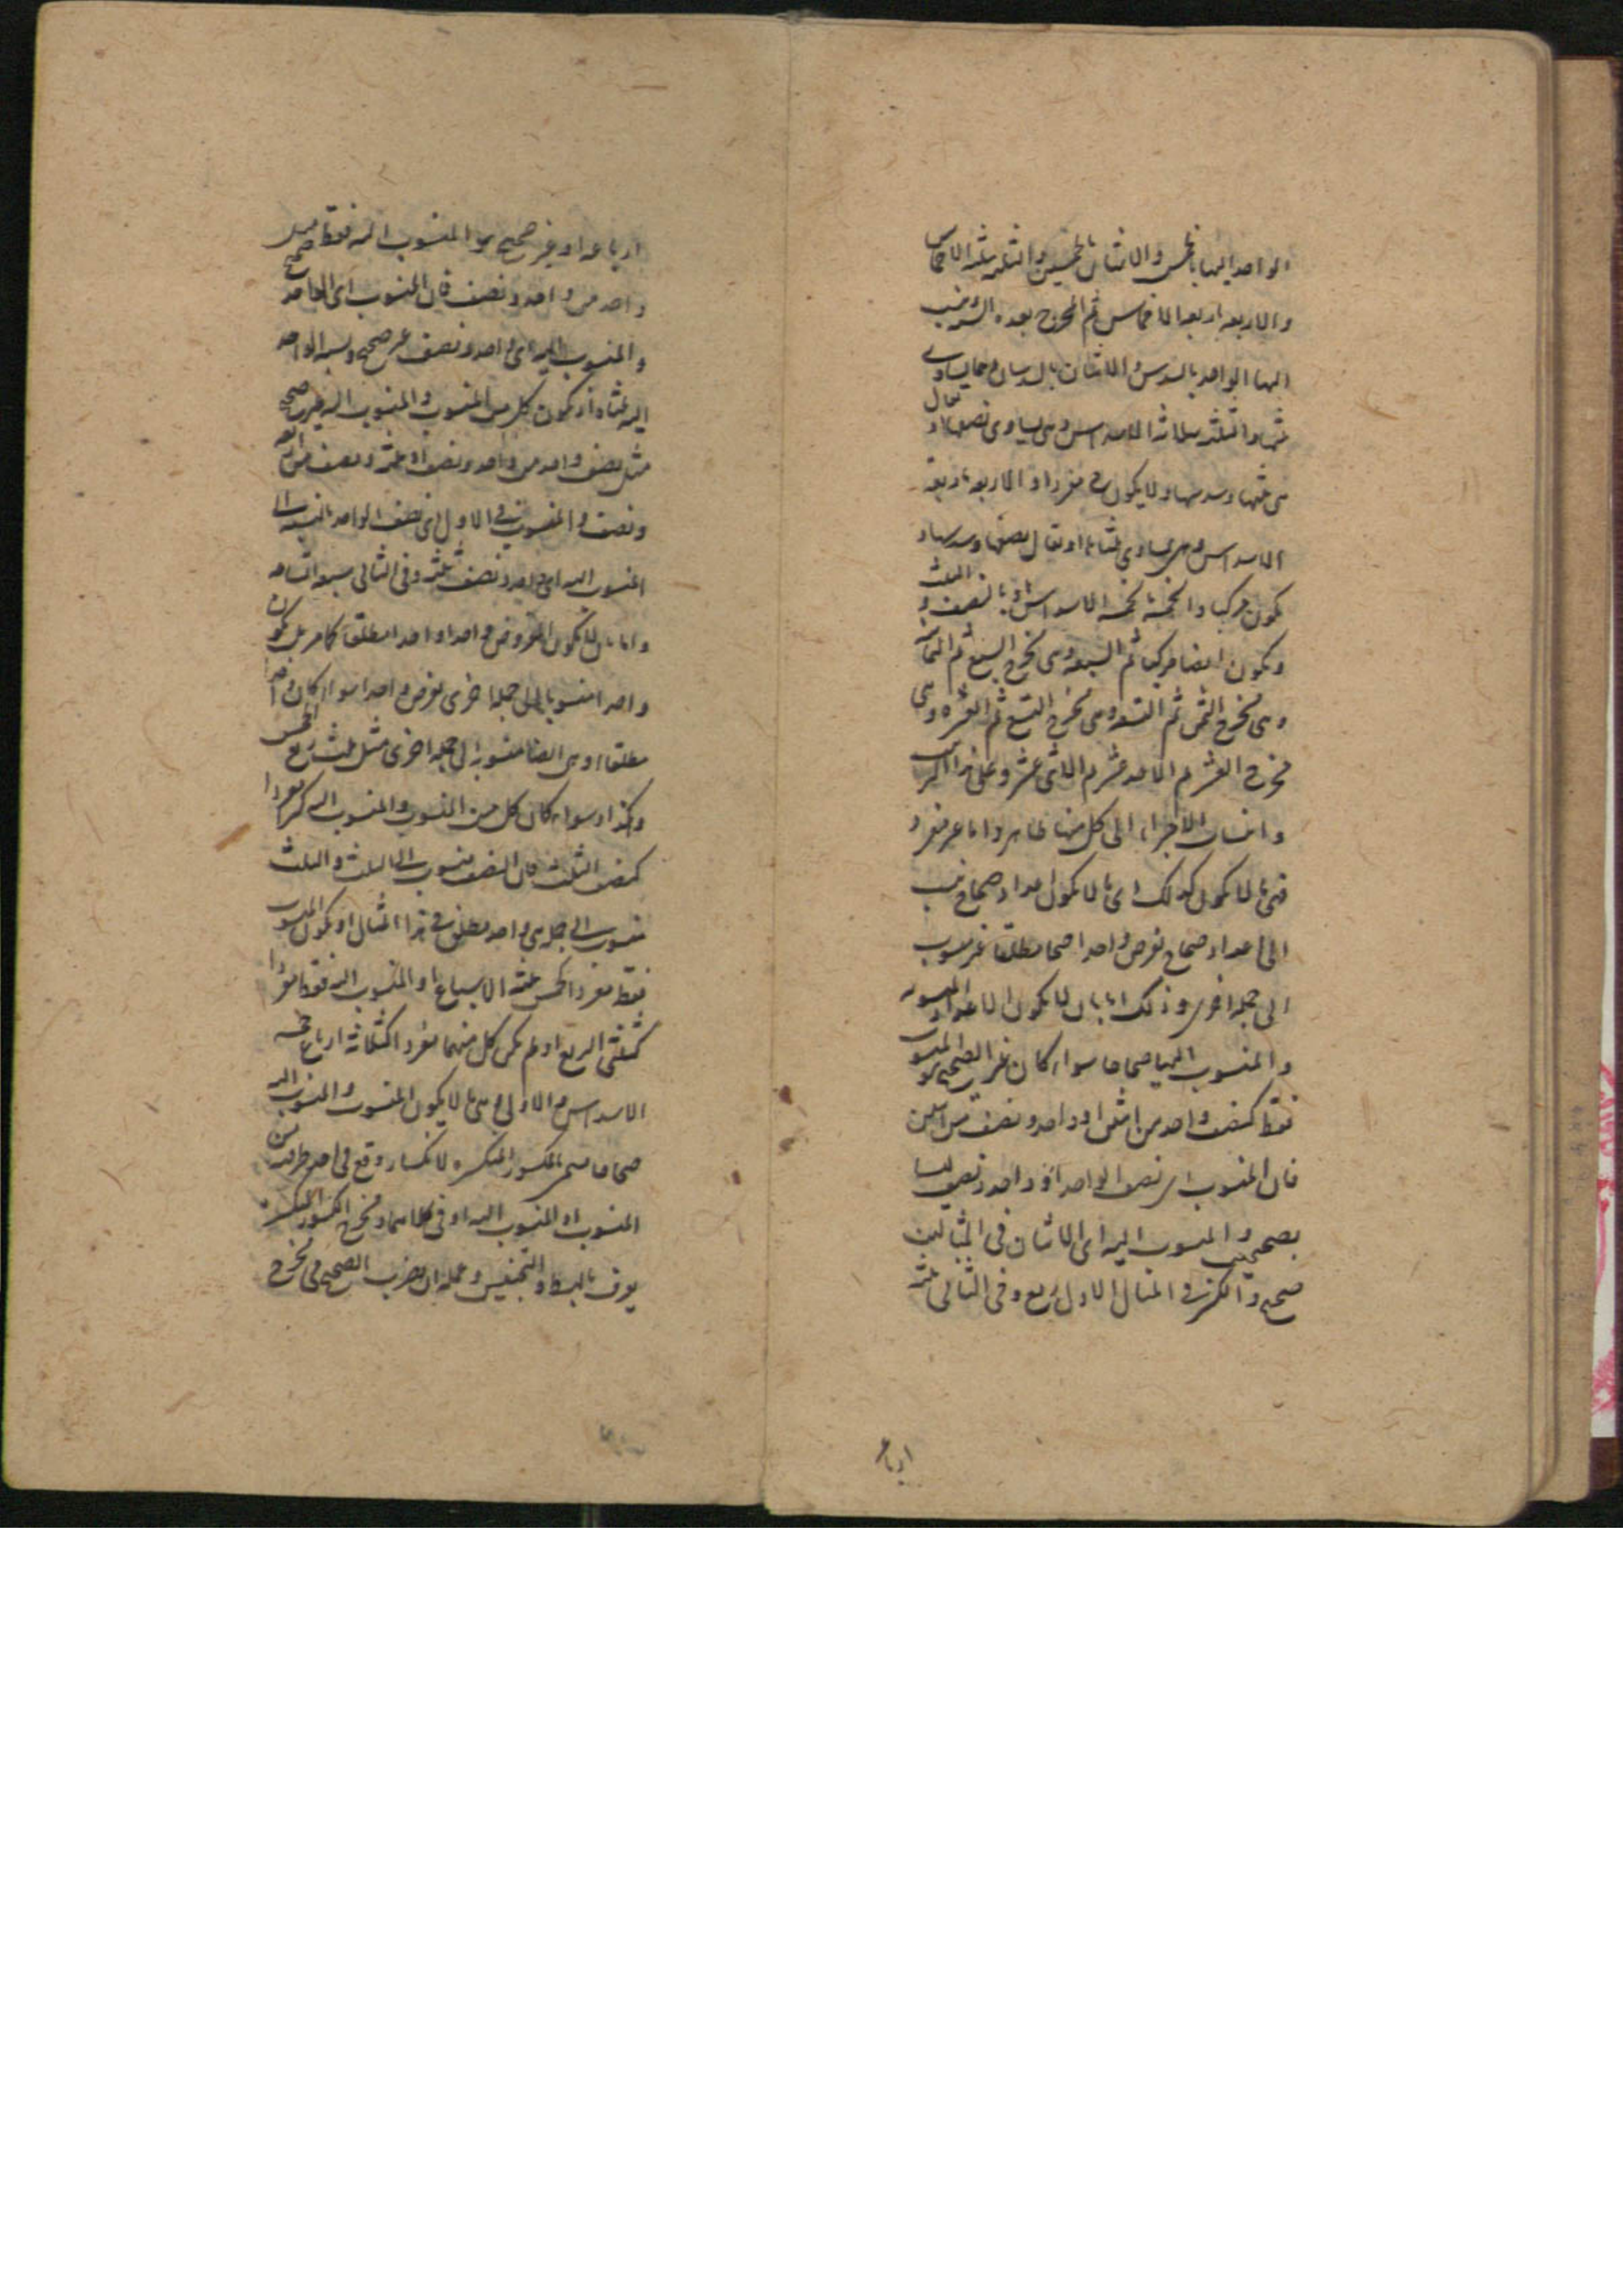 الواحد اليها بالخمس والاثنان بالخمسين والثلثه بثلثه الاخماس
والاربعه باربعه الاخماس ثم المخرج بعده السته فنسب
اليها الواحد بالسدس والاثنان بالسدسان وهما يساوى
ثلثها والثلثه بثلاثه الاسداس وهى يساوى نصفها او يقال
هى ثلثها وسدسها ولا يكون ح مفردا والاربعه باربعة
الاسداس وهى يساوى ثلثاها او يقال نصفها وسدسها و
يكون مركبا والخمسة بخمسة الاسداس او بالنصف و الثلث
ويكون ايضا مركبا ثم السبعه وهى مخرج السبع ثم الثمانيه
وهى مخرج الثمن ثم التسعه وهى مخرج التسع ثم العشره وهى
مخرج العشر ثم الاحد عشر ثم الاثنى عشر وعلى هذا القياس
وانتساب الاجزاء الى كل منها ظاهر واما غير مفرد
فهى ما لا يكون كذلك اى ما لا يكون اعداد صحاح نسب
الى اعداد صحاح يفرض واحدا صحيحا مطلقا غير منسوب
الى جملة اخرى وذلك اما بان لا يكون الاعداد المنسوبه
والمنسوب اليها صحاحا سواء كان غير الصحيح هو المنسوب
فقط كنصف واحد من اثنين او واحد ونصف من اثنين
فان المنسوب اى نصف الواحد او واحد ونصف ليسا
بصحيحين والمنسوب اليه اى الاثنان فى المثالين
صحيح والكسر فى المثال الاول ربع وفى الثانى ثلثة
ارباع
ارباعه او غير صحيح هو المنسوب اليه فقط مثل
واحد من واحد ونصف فان المنسوب اى الواحد صحيح
والمنسوب اليه اى واحد ونصف غير صحيح ونسبة الواحد
اليه ثلثاه او يكون كل من المنسوب والمنسوب اليه غير صحيح
مثل نصف واحد من واحد ونصف او ثلثة ونصف من اربعه
ونصف والمنسوب فى الاول اى نصف الواحد بالنسبه الى
المنسوب اليه اى واحد ونصف ثلثه وفى الثانى سبعه اتساعه
واما بان لا يكون المفروض واحدا واحدا مطلقا كما مر بل يكون
واحدا منسوبا الى جملة اخرى يفرض واحدا سواء كان واحدا
مطلقا او هى ايضا منسوبة الى جملة اخرى مثل ثلث ربع الخمس
وهكذا وسواء كان كل من المنسوب والمنسوب اليه كسرا مفردا
كنصف الثلث فان النصف منسوب الى الثلث والثلث
منسوب الى جملة هى واحد مطلق فى هذا المثال او يكون المنسوب
فقط مفردا كخمس ثلثة الاسباع او المنسوب اليه فقط مفردا
كثلثى الربع او لم يكن كل منهما مفردا كثلاثة ارباع خمسه
الاسداس والاولى وهى ما لا يكون المنسوب والمنسوب اليه
صحاحا يسمى بالكسور المنكسره لانكسار وقع فى احد طرفيه من
المنسوب او المنسوب اليه او فى كلاهما ومخرج الكسور المنكسره
يعرف بالبسط والتجنيس وعمله ان يضرب الصحيح فى مخرج